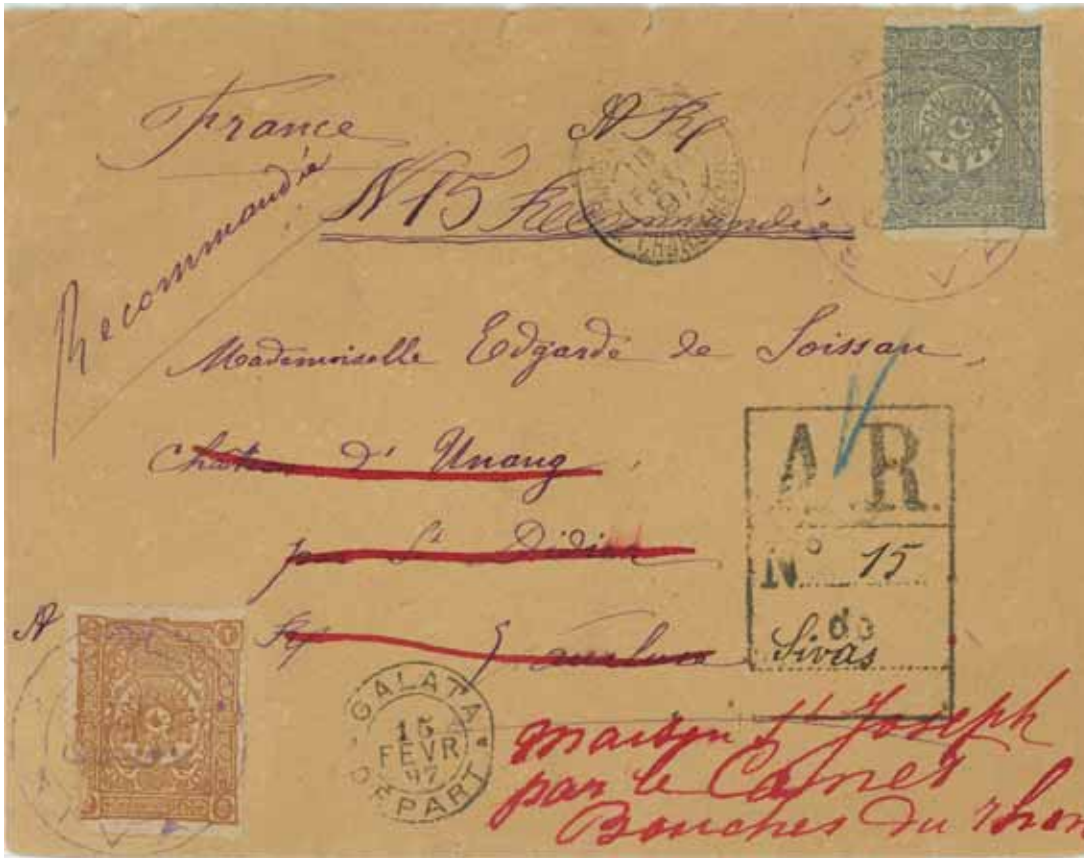 France
Recommandée
N 15 Recommandée
Mademoiselle Edgarde de Soissan
Château d' Unang
par St Didier
Vaucluse
A R
No 15
de
Sivas
GALATA
15
FEVR
97
DEPART
maison St Joseph
par le Cannet
Bouches du rhon